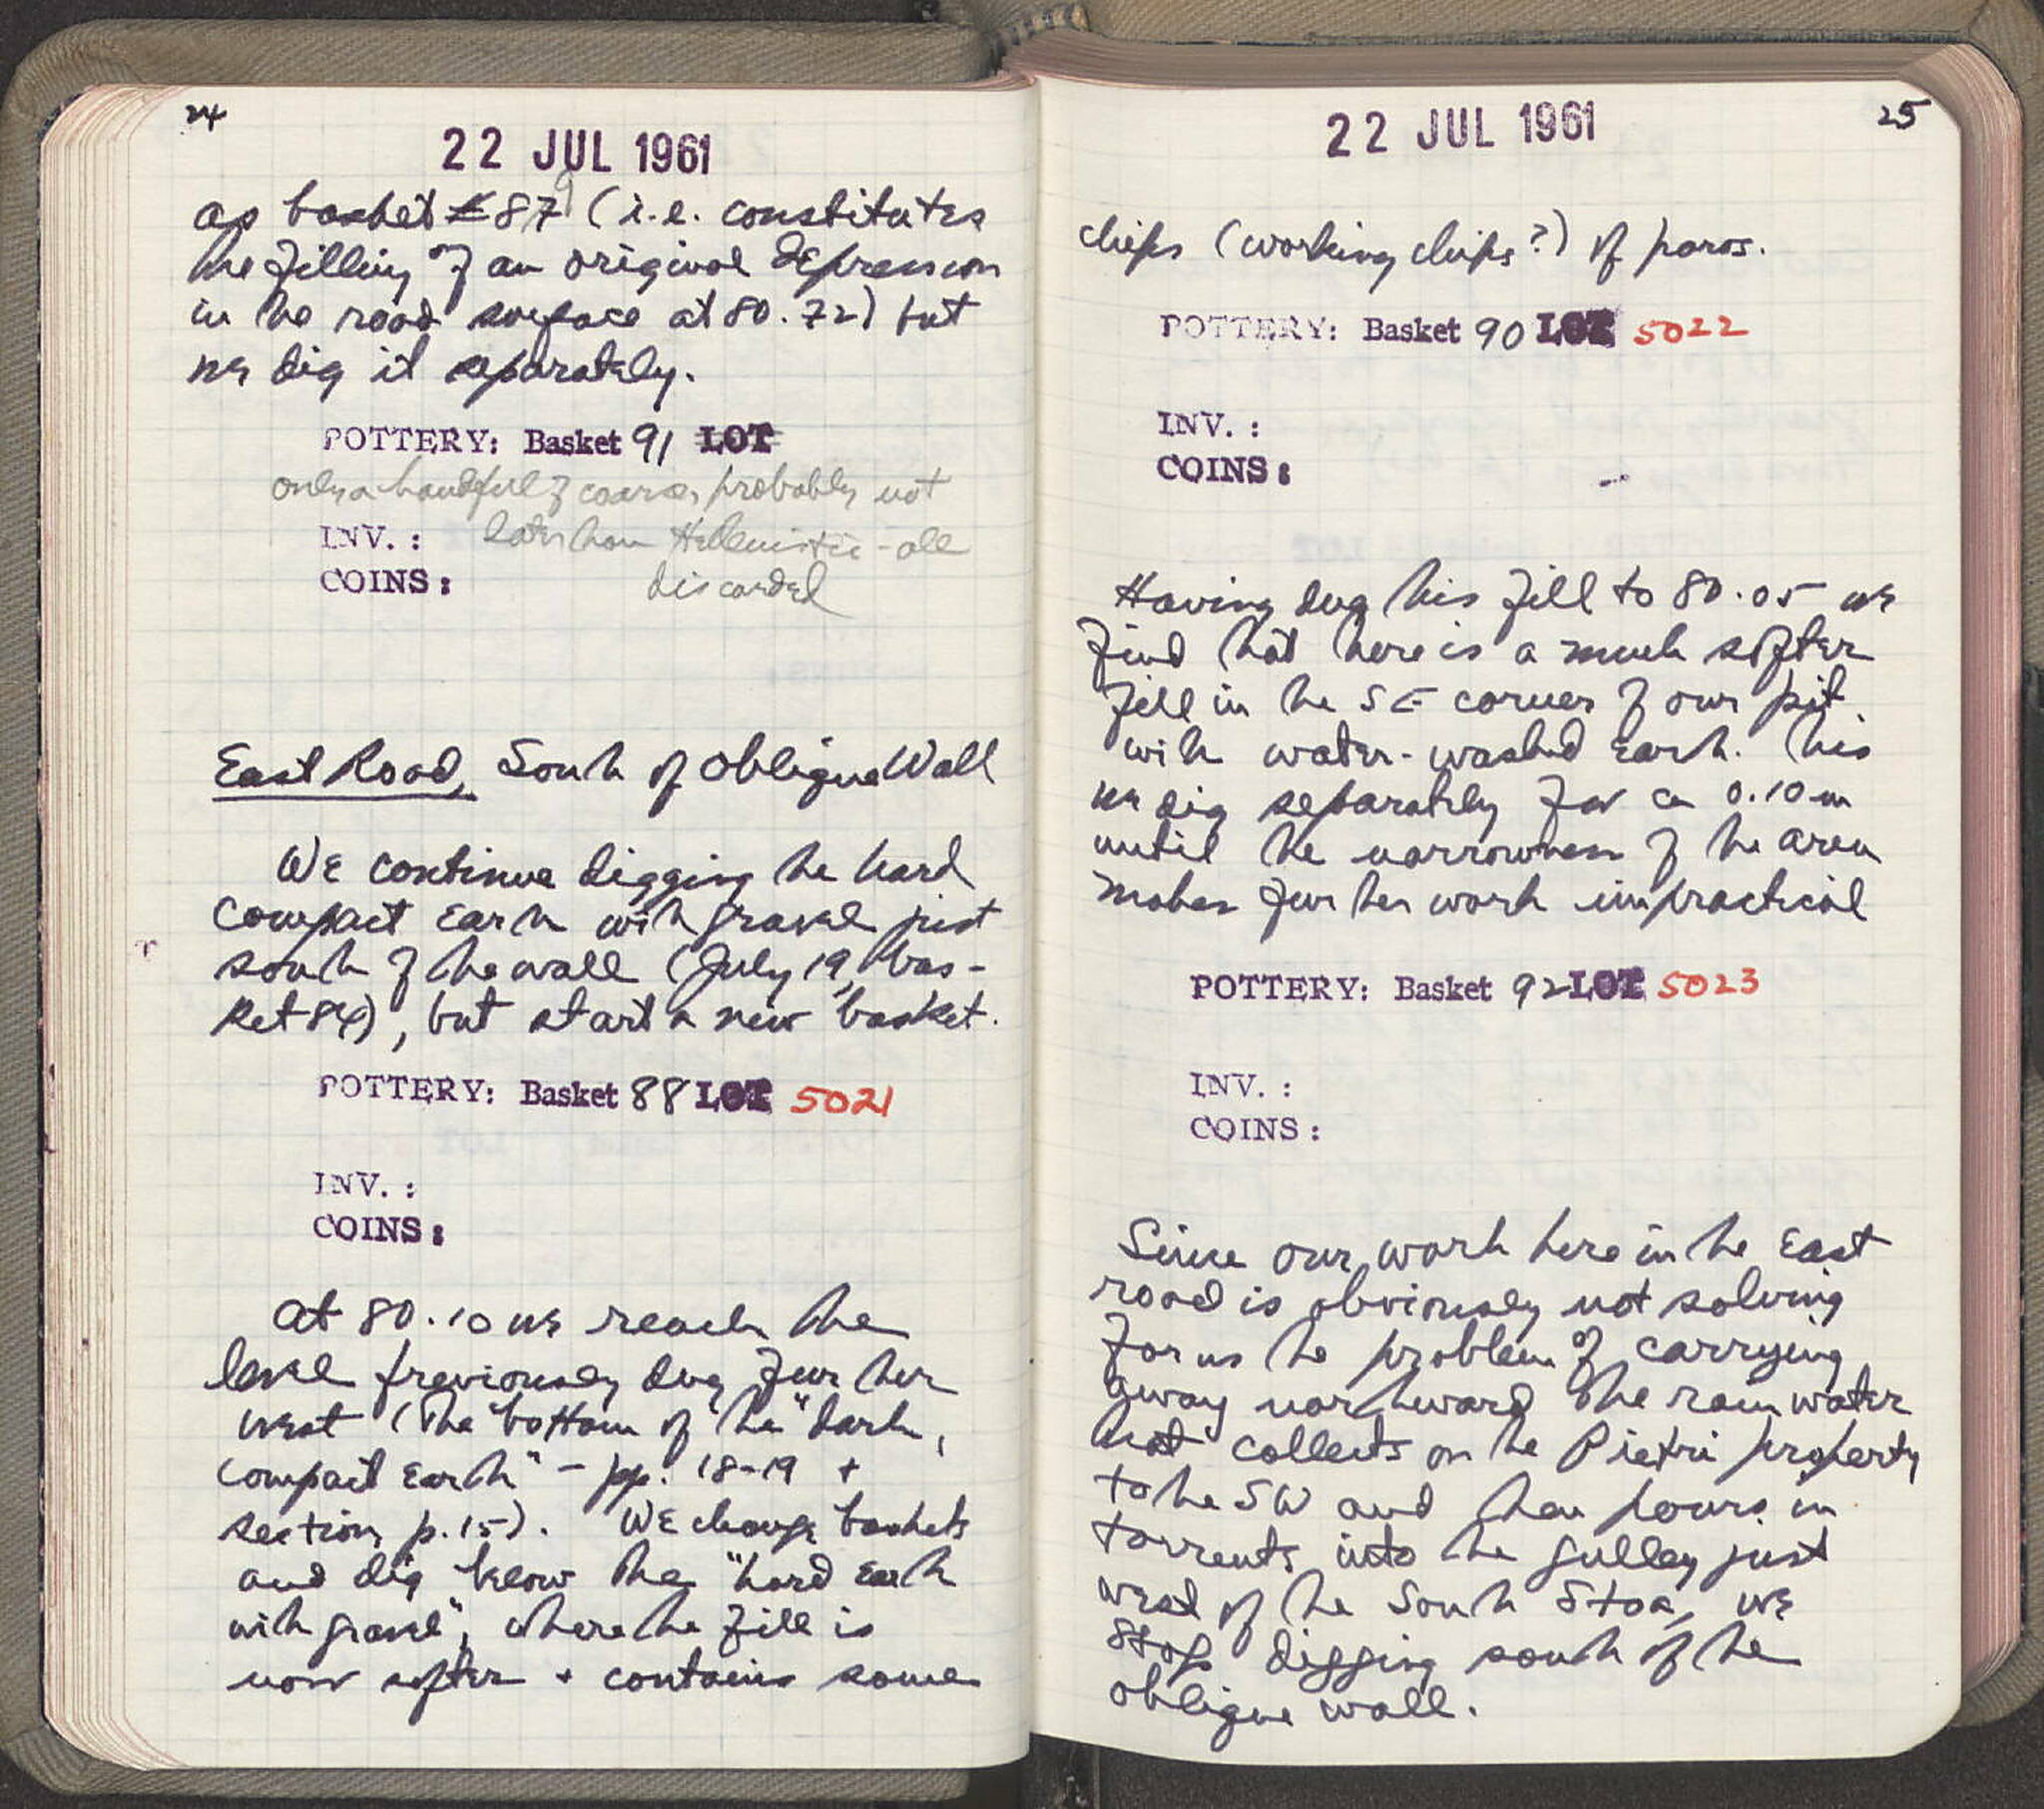 24
22 JUL 1961
as basket #87 (i.e. constitutes
the filling of an original depression
in the road surface at 80.72) but
we dig it separately.
POTTERY: Basket 91 LOT
only a handful of coarse, probably not
INV. : later than Hellenistic - all
COINS: discarded
East Road, South of Oblique Wall
We continue digging the hard
compact earth with gravel just
south of the wall (July 19, bas-
ket 84), but start a new basket.
POTTERY: Basket 88 LOT 5021
INV. :
COINS:
At 80.10 we reach the
level previously dug further
west (the bottom of the "dark,
compact earth" - pp. 18-19 +
section, p. 15). We change baskets
and dig below the "hard earth
with gravel", where the fill is
now softer + contains some
25
22 JUL 1961
chips (working chips?) of poros.
POTTERY: Basket 90 LOT 5022
INV. :
COINS:
Having dug this fill to 80.05 we
find that there is a much softer
fill in the SE corner of our pit
with water-washed earth. This
we dig separately for ca 0.10 m
until the narrowness of the area
makes further work impractical
POTTERY: Basket 92 LOT 5023
INV. :
COINS:
Since our work here in the East
road is obviously not solving
for us the problem of carrying
away northward the rain water
that collects on the Pietri property
to the SW and then pours in
torrents into the gulley just
west of the South Stoa, we
stop digging south of the
oblique wall.